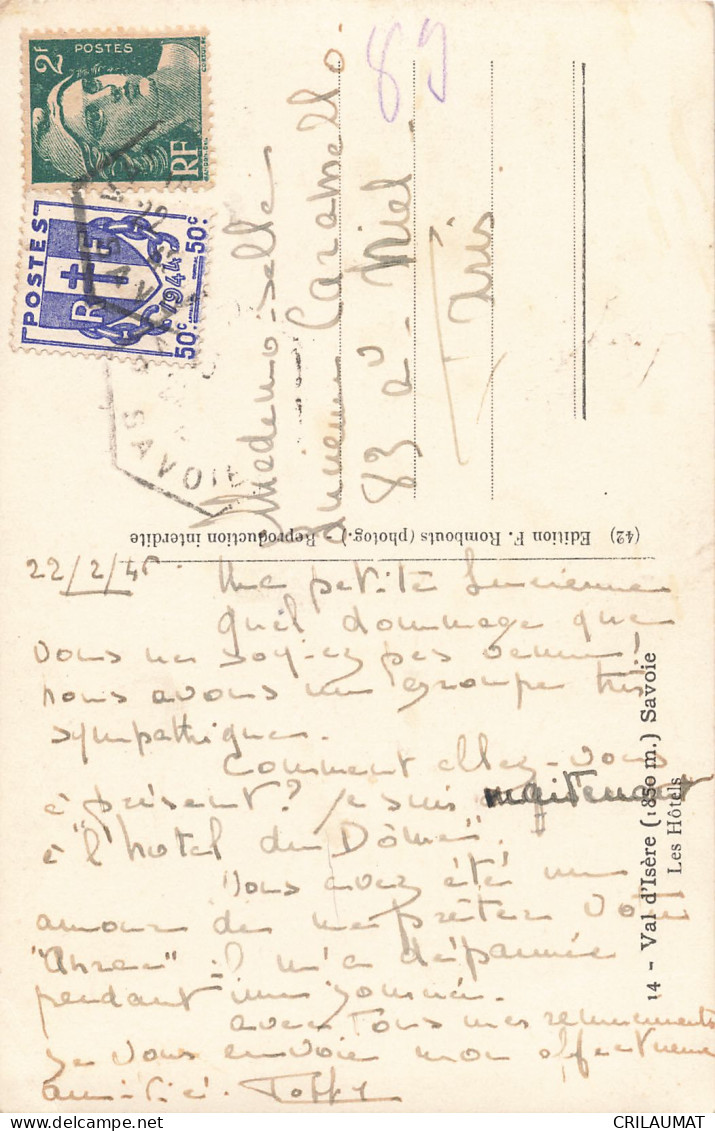 2F POSTES
RF
POSTES
RF
50c 1944 50c
SAVOIE
89
Mademoiselle
Lucienne Caramello.
83 av Niel.
Paris
(42) Edition F. Rombouts (photog.) - Reproduction interdite
14 - Val d'Isère (1850 m.) Savoie
Les Hôtels
22/2/45.
Ma petite Lucienne
quel dommage que
vous ne soy-ez pas venue!
nous avons un groupe très
sympathique.
Comment allez-vous
à présent? je suis maitenant
à "l'hotel du Dôme".
Vous avez été un
amour de me prêter votre
il m'a dépannée
pendant une journée.
avec tous mes remerciements
je vous envoie mon affectueuse
amitié.
CRILAUMAT